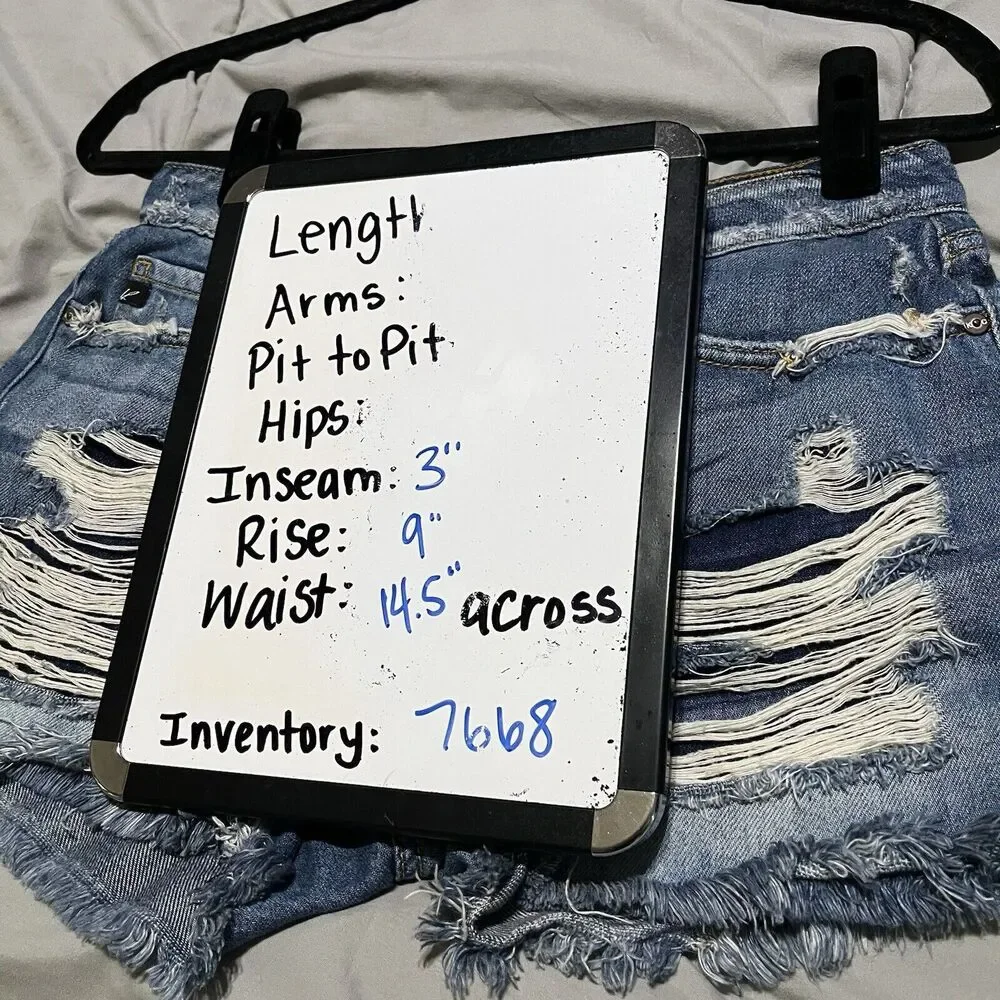 Length
Arms:
Pit to Pit
Hips:
Inseam: 3"
Rise: 9"
Waist: 14.5" across
Inventory: 7668